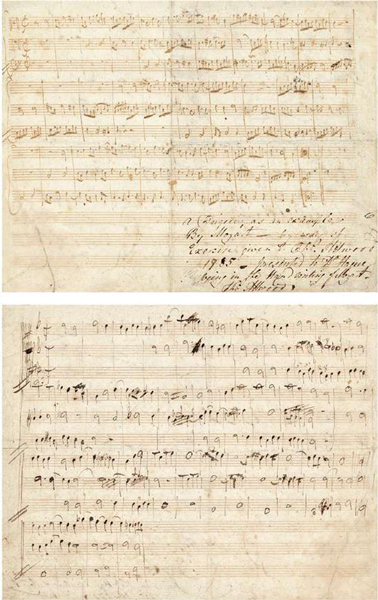 a Fugue as an example
By Mozart — by way of
Exercise given to Thos. Attwood
1785 — presented to Dr Hague
being in the Hand writing of Mozart
Thos. Attwood